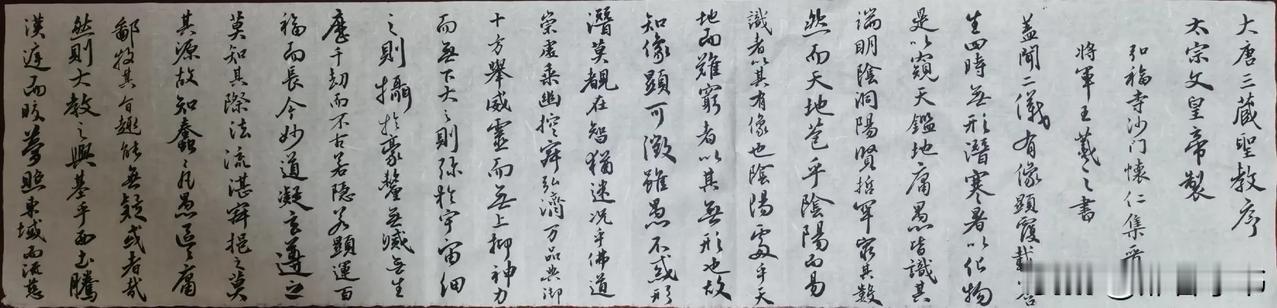 大唐三藏聖教序
太宗文皇帝製
弘福寺沙门懷仁集晋
将軍王羲之書
盖聞二儀有像顯覆載含
生四時無形潛寒暑以化物
是以窺天鑑地庸愚皆識其
端明陰洞陽賢哲罕窮其數
然而天地苞乎陰陽而易
識者以其有像也陰陽處乎天
地而難窮者以其無形也故
知像顯可徵雖愚不惑形
潛莫覩在智猶迷況乎佛道
崇虛乘幽控寂弘濟万品典御
十方舉威靈而無上抑神力
而無下大之則弥於宇宙細
之則攝於豪釐無滅無生
歷千劫而不古若隐若顯運百
福而長今妙道凝玄遵之
莫知其際法流湛寂挹之莫
其源故知蠢蠢凡愚區區庸
鄙投其旨趣能無疑或者哉
然則大教之興基乎西土騰
漢庭而皎夢照東域而流慈